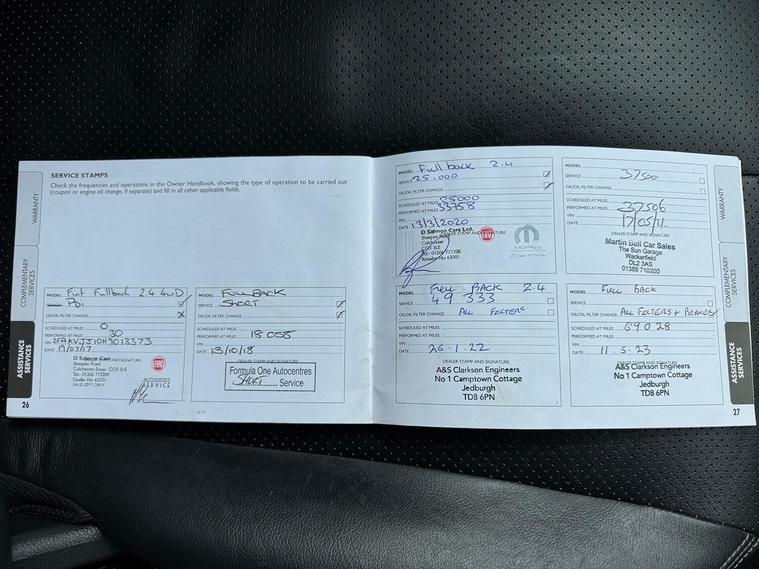 SERVICE STAMPS
Check the frequencies and operations in the Owner Handbook, showing the type of operation to be carried out
(coupon or engine oil change, if separate) and fill in all other applicable fields.
WARRANTY
COMPLEMENTARY
SERVICES
ASSISTANCE
SERVICES
MODEL Fiat Fullback 2.4 4WD
PDI
OIL/OIL FILTER CHANGE
SCHEDULED AT MILES 0
PERFORMED AT MILES 30
VIN
DATE 19/07/17
D Salmon Cars
DEALER STAMP AND SIGNATURE
Sheepen Road
Colchester Essex CO3 3LE
Tel:- 01206 715200
Dealer No 63001
VALID 2017 ONLY
AUTHORISED
SERVICE
26
MODEL FULLBACK
SERVICE SHORT
OIL/OIL FILTER CHANGE
SCHEDULED AT MILES
PERFORMED AT MILES 18 055
VIN
DATE 13/10/18
DEALER STAMP AND SIGNATURE
Formula One Autocentres
SHORT Service
MODEL Fullback 2.4
SERVICE 25,000
OIL/OIL FILTER CHANGE
SCHEDULED AT MILES 25000
PERFORMED AT MILES 33758
VIN
DATE 13/3/2020
D Salmon Cars Ltd.
DEALER STAMP AND SIGNATURE
Sheepen Road
Colchester
CO3 3LE
Tel:- 01206 715200
Dealer No 63001
MOPAR
MODEL
SERVICE 37500
OIL/OIL FILTER CHANGE
SCHEDULED AT MILES
PERFORMED AT MILES 37506
VIN
DATE 17/05/21.
DEALER STAMP AND SIGNATURE
Martin Bell Car Sales
The Sun Garage
Wackerfield
DL2 3AS
01388 710200
MODEL FULL BACK 2.4
SERVICE 49 333
OIL/OIL FILTER CHANGE ALL FELTERS
SCHEDULED AT MILES
PERFORMED AT MILES
VIN
DATE 26.1.22
DEALER STAMP AND SIGNATURE
A&S Clarkson Engineers
No 1 Camptown Cottage
Jedburgh
TD8 6PN
MODEL FULL BACK
SERVICE
OIL/OIL FILTER CHANGE ALL FELTERS + BRAKES
SCHEDULED AT MILES 69028
PERFORMED AT MILES
VIN
DATE 11.5.23
DEALER STAMP AND SIGNATURE
A&S Clarkson Engineers
No 1 Camptown Cottage
Jedburgh
TD8 6PN
WARRANTY
COMPLEMENTARY
SERVICES
ASSISTANCE
SERVICES
27